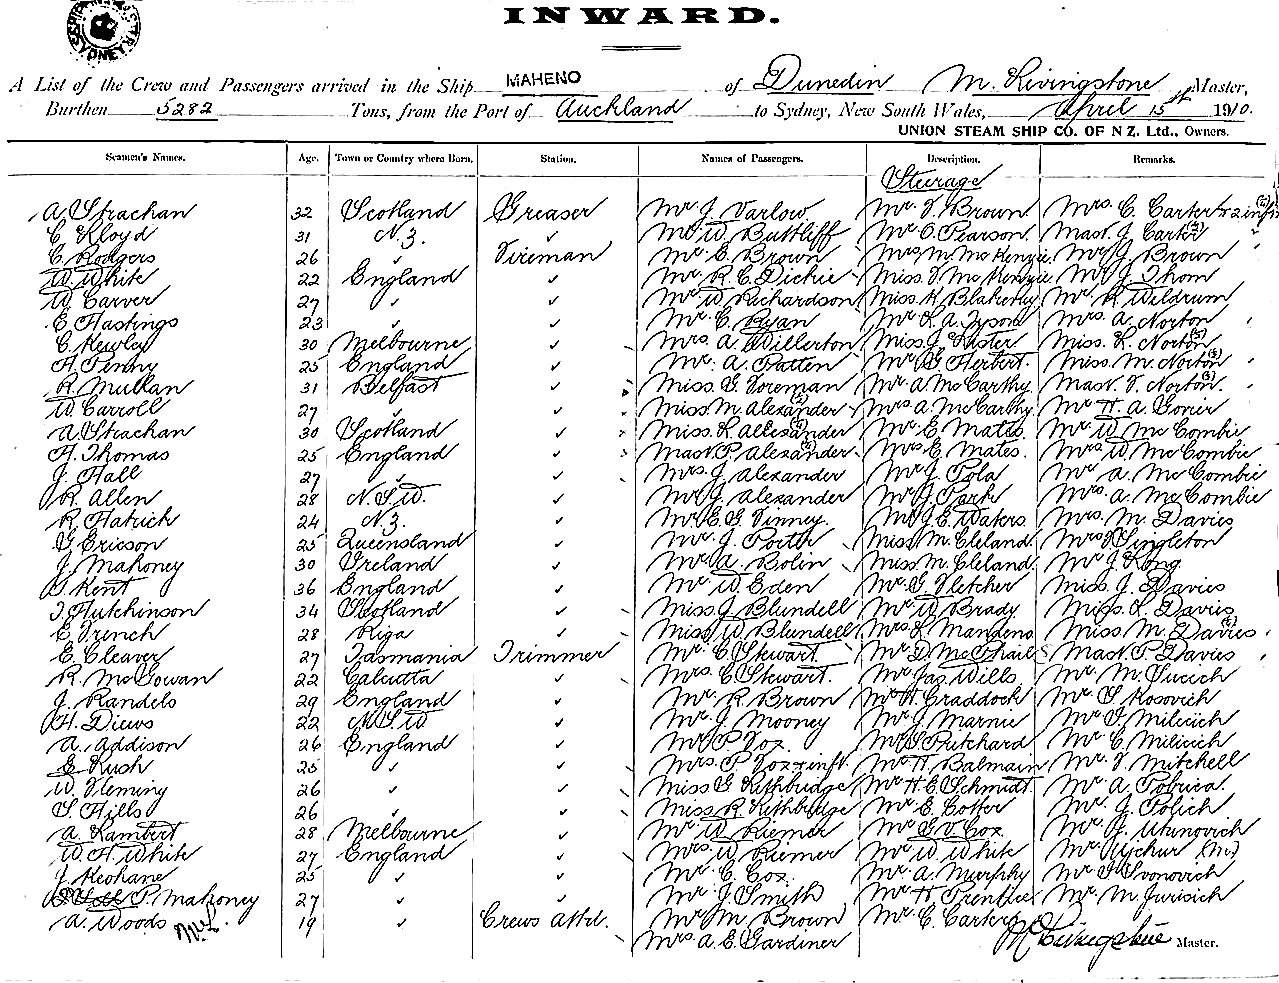 INWARD.
SYDNEY
A List of the Crew and Passengers arrived in the Ship MAHENO of Dunedin M. Livingstone Master,
Burthen 5282 Tons, from the Port of Auckland to Sydney, New South Wales, April 15th 1910.
UNION STEAM SHIP CO. OF N Z. Ltd., Owners.
Seamen's Names. Age. Town or Country where Born. Station. Names of Passengers. Description. Remarks.
Steerage
A. Strachan 32 Scotland Greaser Mr J. Varlow Mr F. Brown Mrs. C. Carter & 2 infts (2)
C. Lloyd 31 N.Z. ✓ Mr W. Buttliff Mr O. Pearson Mast. J. Carter (2)
C. Rodgers 26 ✓ Fireman Mr. E. Brown Mrs M. McKenzie Mr J. Brown
W. White 22 England ✓ Mr. R. C. Dickie Miss F. McKenzie Mr J. Thom
W. Carver 27 ✓ ✓ Mr W. Richardson Miss. K. Blakeney Mr R. Weldrum
E. Hastings 23 ✓ ✓ Mr. C. Ryan Mr L. A. Tyson Mrs. A. Norton
C. Kewley 30 Melbourne ✓ Mrs. A. Willerton Miss J. Luster Miss. L. Norton (5)
H. Penny 25 England ✓ Mr. A. Patten Mr G. Herbert. Miss. M. Norton (3)
R. Mullan 31 Belfast ✓ Miss. G. Foreman Mr. A. McCarthy Mast. F. Norton. (3)
W. Carroll 27 ✓ ✓ Miss M. Alexander (2) Mrs A. McCarthy Mr H. A. Gorier
A. Strachan 30 Scotland ✓ Miss. L. Allexander Mr. E. Mates. Mr W. McCombie
H. Thomas 25 England ✓ Mast P. Alexander Mrs E. Mates. Mrs W. McCombie
J. Hall 27 ✓ ✓ Mrs. J. Alexander Mr J. Pola Mr A. McCombie
R. Allen 28 N.S.W. ✓ Mr J. Alexander Mr J. Park Mrs. A. McCombie
R. Hatrick 24 N.Z. ✓ Mr E. G. Finney Mr J. E. Waters Mrs. M. Davies
G. Ericson 25 Queensland ✓ Mr. J. Porth Miss M. Cleland Mrs Singleton
J. Mahoney 30 Ireland ✓ Mr A. Bolin Miss M. Cleland Mr J. Kong
Kent 36 England ✓ Mr W. Eden Mr. G. Fletcher Miss. J. Davies
J. Hutchinson 34 Scotland ✓ Miss J. Blundell Mr W. Brady Miss. L. Davies
E. French 28 Riga ✓ Miss W. Blundell Mrs. L. Mandeno Miss M. Davies (6)
E. Cleaver 27 Tasmania Trimmer Mr. C. Stewart Mr D. McPhail Mast P. Davies
R. McGowan 22 Calcutta ✓ Mrs. C. Stewart. Mr Jas. Wills Mr. M. Sucich
J. Randels 29 England ✓ Mr. R. Brown Mr H. Craddock Mr S. Kosovich
H. Diews 22 N.S.W ✓ Mr. J. Mooney Mr. J. Marnie Mr F. Milicich
A. Addison 26 England ✓ Mr P. Fox. Mr S. Pritchard Mr. C. Milicich
E. Rush 25 ✓ ✓ Mrs. P. Fox & inft. Mr H. Balmain Mr. F. Mitchell
W. Fleming 26 ✓ ✓ Miss G. Lethbridge Mr. H. C. Schmidt Mr A. Pobrica.
S. Hills 26 ✓ ✓ Miss R. Lethbridge Mr. E. Cotter Mr. J. Polich
A. Lambert 28 Melbourne ✓ Mr. W. Riemer Mr. G. V. Cox. Mr. J. Utunovich
W. H. White 27 England ✓ Mrs. W. Riemer Mr. W. White Mr. Ajchur (M)
J. Keohane 25 ✓ ✓ Mr. C. Cox. Mr. A. Murphy Mr J. Ivonovich
P. Mahoney 27 ✓ ✓ Mr J. Smith Mr. H. Prentice Mr. M. Jurisich
A. Woods M.L. 19 ✓ Crews Attd. Mr. M. Brown Mr. C. Carter
Mrs. A. E. Gardiner M Livingstone Master.